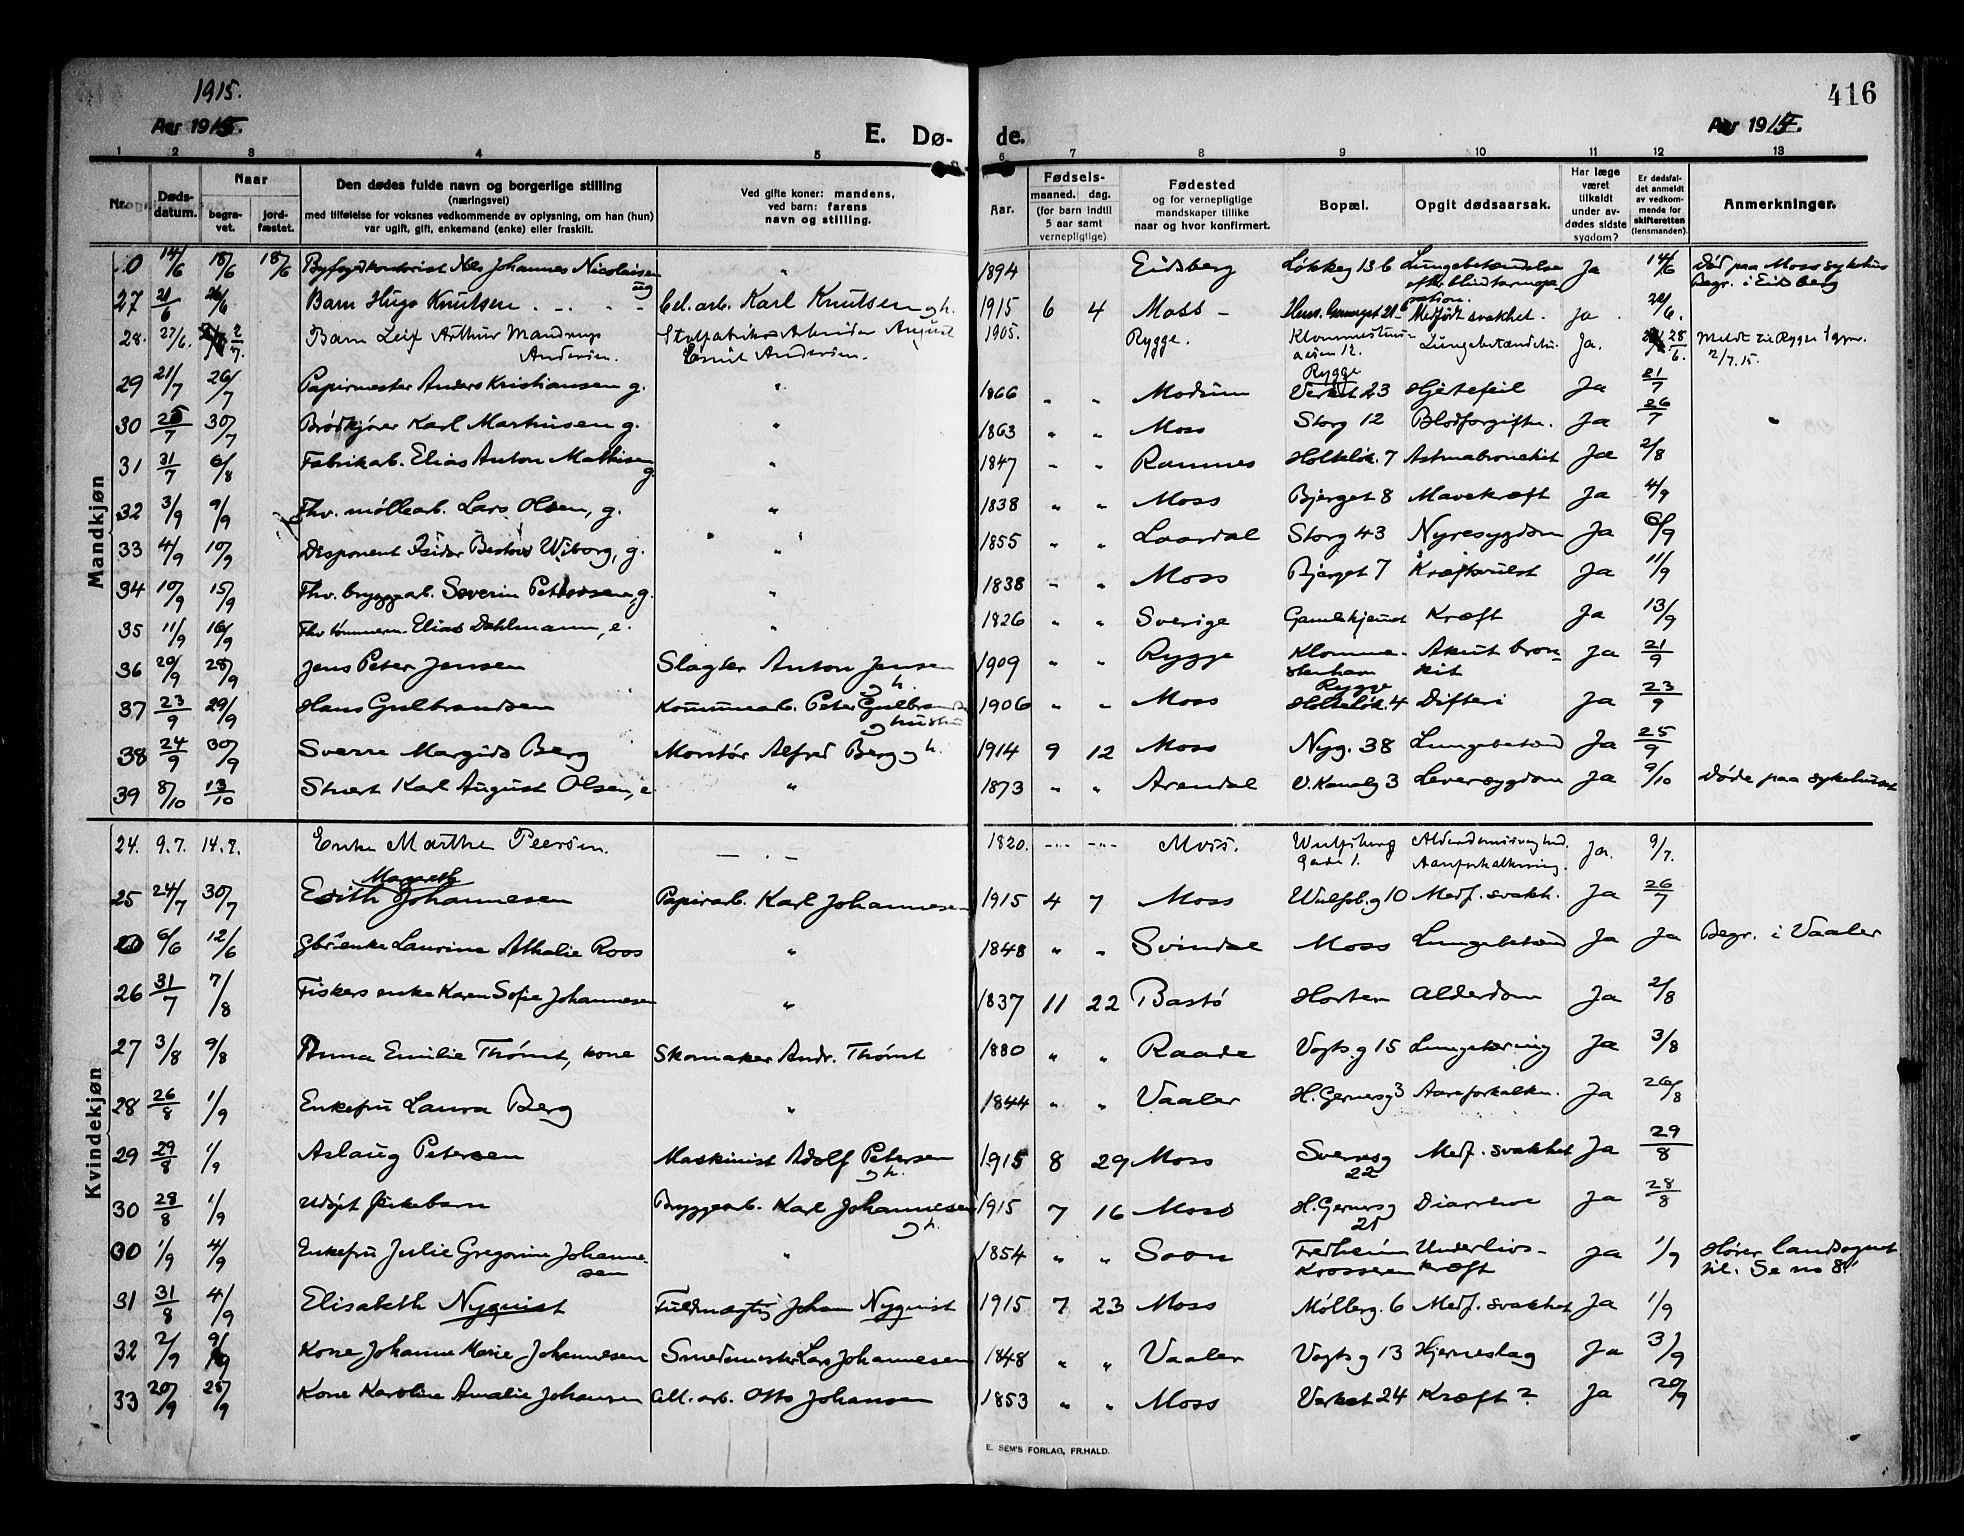 1915.
416
Aar 1915.
E. Dø-
de.
Aar 1915.
1 2 3 4 5 6 7 8 9 10 11 12 13
Nr.
Døds-
datum.
Naar
begra-
vet.
jord-
fæstet.
Den dødes fulde navn og borgerlige stilling
(næringsvei)
med tilføielse for voksnes vedkommende av oplysning, om han (hun)
var ugift, gift, enkemand (enke) eller fraskilt.
Ved gifte koner: mandens,
ved barn: farens
navn og stilling.
Aar.
Fødsels-
maaned. dag.
(for barn indtil
5 aar samt
vernepligtige)
Fødested
og for vernepligtige
mandskaper tillike
naar og hvor konfirmert.
Bopæl.
Opgit dødsaarsak.
Har læge
været
tilkaldt
under av-
dødes sidste
sygdom?
Er dødsfal-
det anmeldt
av vedkom-
mende for
skifteretten
(lensmanden).
Anmerkninger.
Mandkjøn
0 14/6 18/6 18/6 Byfogdkontorist Nils Johannes Nicolaisen ug " 1894 Eidsberg Løkkeg 13 b Lungebetændelse efter blindtarmope-ration. Ja 14/6 Død paa Moss sykehus Begr. i Eidsberg
27 21/6 26/6 Barn Hugo Knutsen Cel. arb. Karl Knutsen og h. 1915 6 4 Moss Medfødt svakhet. Ja 22/6.
28. 27/6. 2/7. Barn Leif Arthur Mandrup Andersen. August Emil Andersen. 1905. Rygge. Rygge Lungebetændelse. Ja. 28/6. Meldt til Rygge 2/7.15.
29 21/7 26/7 Papirmester Anders Kristiansen g. " 1866 " " Modum Verket 23 Hjertefeil Ja 21/7
30 25/7 30/7 Brødkjører Karl Marthisen g. " 1863 " " Moss Storg 12 Blodforgiftn. Ja 26/7 "
31 31/7 6/8 Fabrikab. Elias Anton Mathisen g. " 1847 " " Ramnes Holteløk. 7 Astmabronchit Ja 2/8
32 3/9 9/9 Fhv. møllearb. Lars Olsen, g. " 1838 " " Moss Bjerget 8 Mavekræft Ja 4/9
33 4/9 10/9 Disponent Isidor Wiborg, g. " 1855 " " Laardal Storg 43 Nyresygdom Ja 6/9
34 10/9 15/9 Fhv. bryggearb. Severin Pettersen, g. " 1838 " " Moss Bjerget 7 Kræftsvulst Ja 11/9
35 11/9 16/9 Fhv tømmerm. Elias Dahlmann, e. " 1826 " " Sverige Gamlehjemet Kræft Ja 13/9
36 20/9 28/9 Jens Peter Jensen Slagter Anton Jensen og h. 1909 " " Rygge Klomme-stenhavn Rygge Akut bron-kit Ja 21/9
37 23/9 29/9 Hans Gulbrandsen Kommunearb. Peter Gulbrandsen og hustru 1906 " " Moss Holteløk. 4 Difteri Ja 23/9
38 24/9 30/9 Sverre Margido Berg Montør Alfred Berg og h. 1914 9 12 Moss Nyg. 38 Lungebetænd Ja 25/9
39 8/10 13/10 Stuert Karl August Olsen, e " 1873 " " Arendal V. Kanalg 3 Leversygdom Ja 9/10 Døde paa sykehuset
Kvindekjøn
24. 9.7. 14.7. Enke Marthe Peersen. — . — 1820. Moss. Wulfsberg Gade 1. Alderdomssvaghed. Aareforkalkning. Ja. 9/7.
25 24/7 30/7 Edith Margreth Johannesen Papirarb. Karl Johannesen 1915 4 7 Moss Wulfsb. g 10 Medf. svakh. Ja 26/7
20 6/6 12/6 Gbr.enke Laurine Athalie Roos " 1848 " " Svindal Moss Lungebetænd Ja Ja Begr. i Vaaler
26 31/7 7/8 Fiskers enke Karen Sofie Johannesen " 1837 11 22 Bastø Horten Alderdom Ja 2/8
27 3/8 9/8 Anna Emilie Thømt, kone Skomaker Andr. Thømt 1880 " " Raade Vogts. g 15 Lungetæring Ja 3/8
28 26/8 1/9 Enkefru Laura Berg " 1844 " " Vaaler H. Gernersg 3 Aareforkalkn. Ja 26/8
29 29/8 1/9 Aslaug Petersen Maskinist Adolf Petersen og h. 1915 8 29 Moss Sveresg 22 Medf. svakhet Ja 29/8
30 28/8 1/9 Udøpt pikebarn Bryggearb. Karl Johannesen og h. 1915 7 16 Moss H. Gernersg 25 Diarrhoe Ja 28/8
30 1/9 4/9 Enkefru Julie Gregorine Johanne-sen " 1854 " " Soon Fredheim Krosseren Underlivs-kræft Ja 1/9 Hører landsognet til. Se no 8!
31 31/8 4/9 Elisabeth Nyquist Fuldmægtig Johan Nyquist 1915 7 23 Moss Mølleg. 6 Medf. svakhet Ja 1/9
32 2/9 9/9 Kone Johanne Marie Johannesen Smedmester Lars Johannesen 1848 " " Vaaler Vogts g 13 Hjerneslag Ja 3/9
33 20/9 25/9 Kone Karoline Amalie Johansen Cell. arb. Otto Johansen 1853 " " Moss Verket 24 Kræft? Ja 20/9
E. SEM'S FORLAG, FR.HALD.